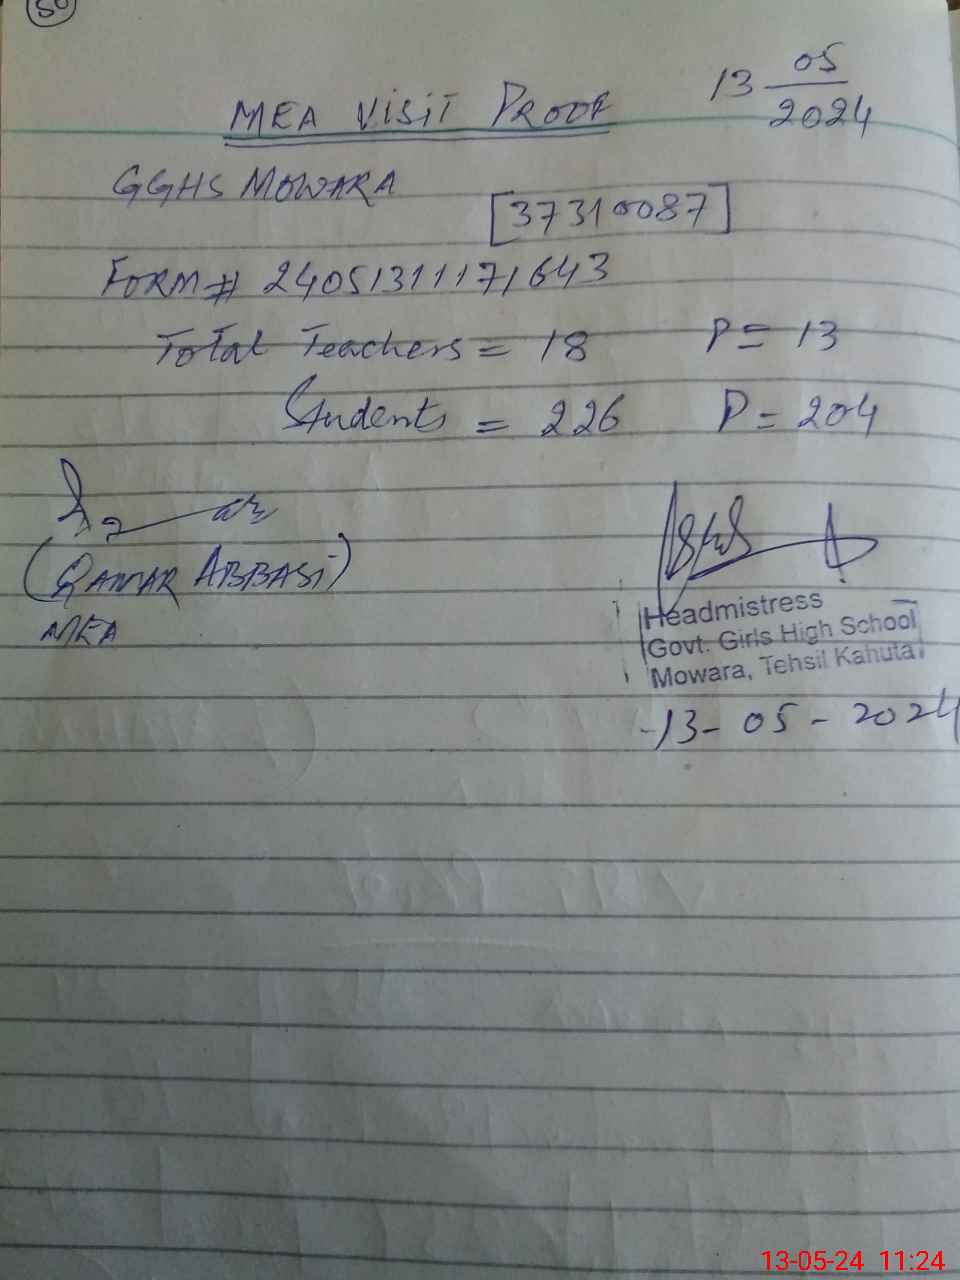 50
MEA VISIT PROOF 13 05/2024
GGHS MOWARA
[37310087]
FORM# 24051311171643
Total Teachers = 18 P = 13
Students = 226 P = 204
(QAMAR ABBASI)
MEA
Headmistress
Govt. Girls High School
Mowara, Tehsil Kahuta
-13-05-2024
13-05-24 11:24